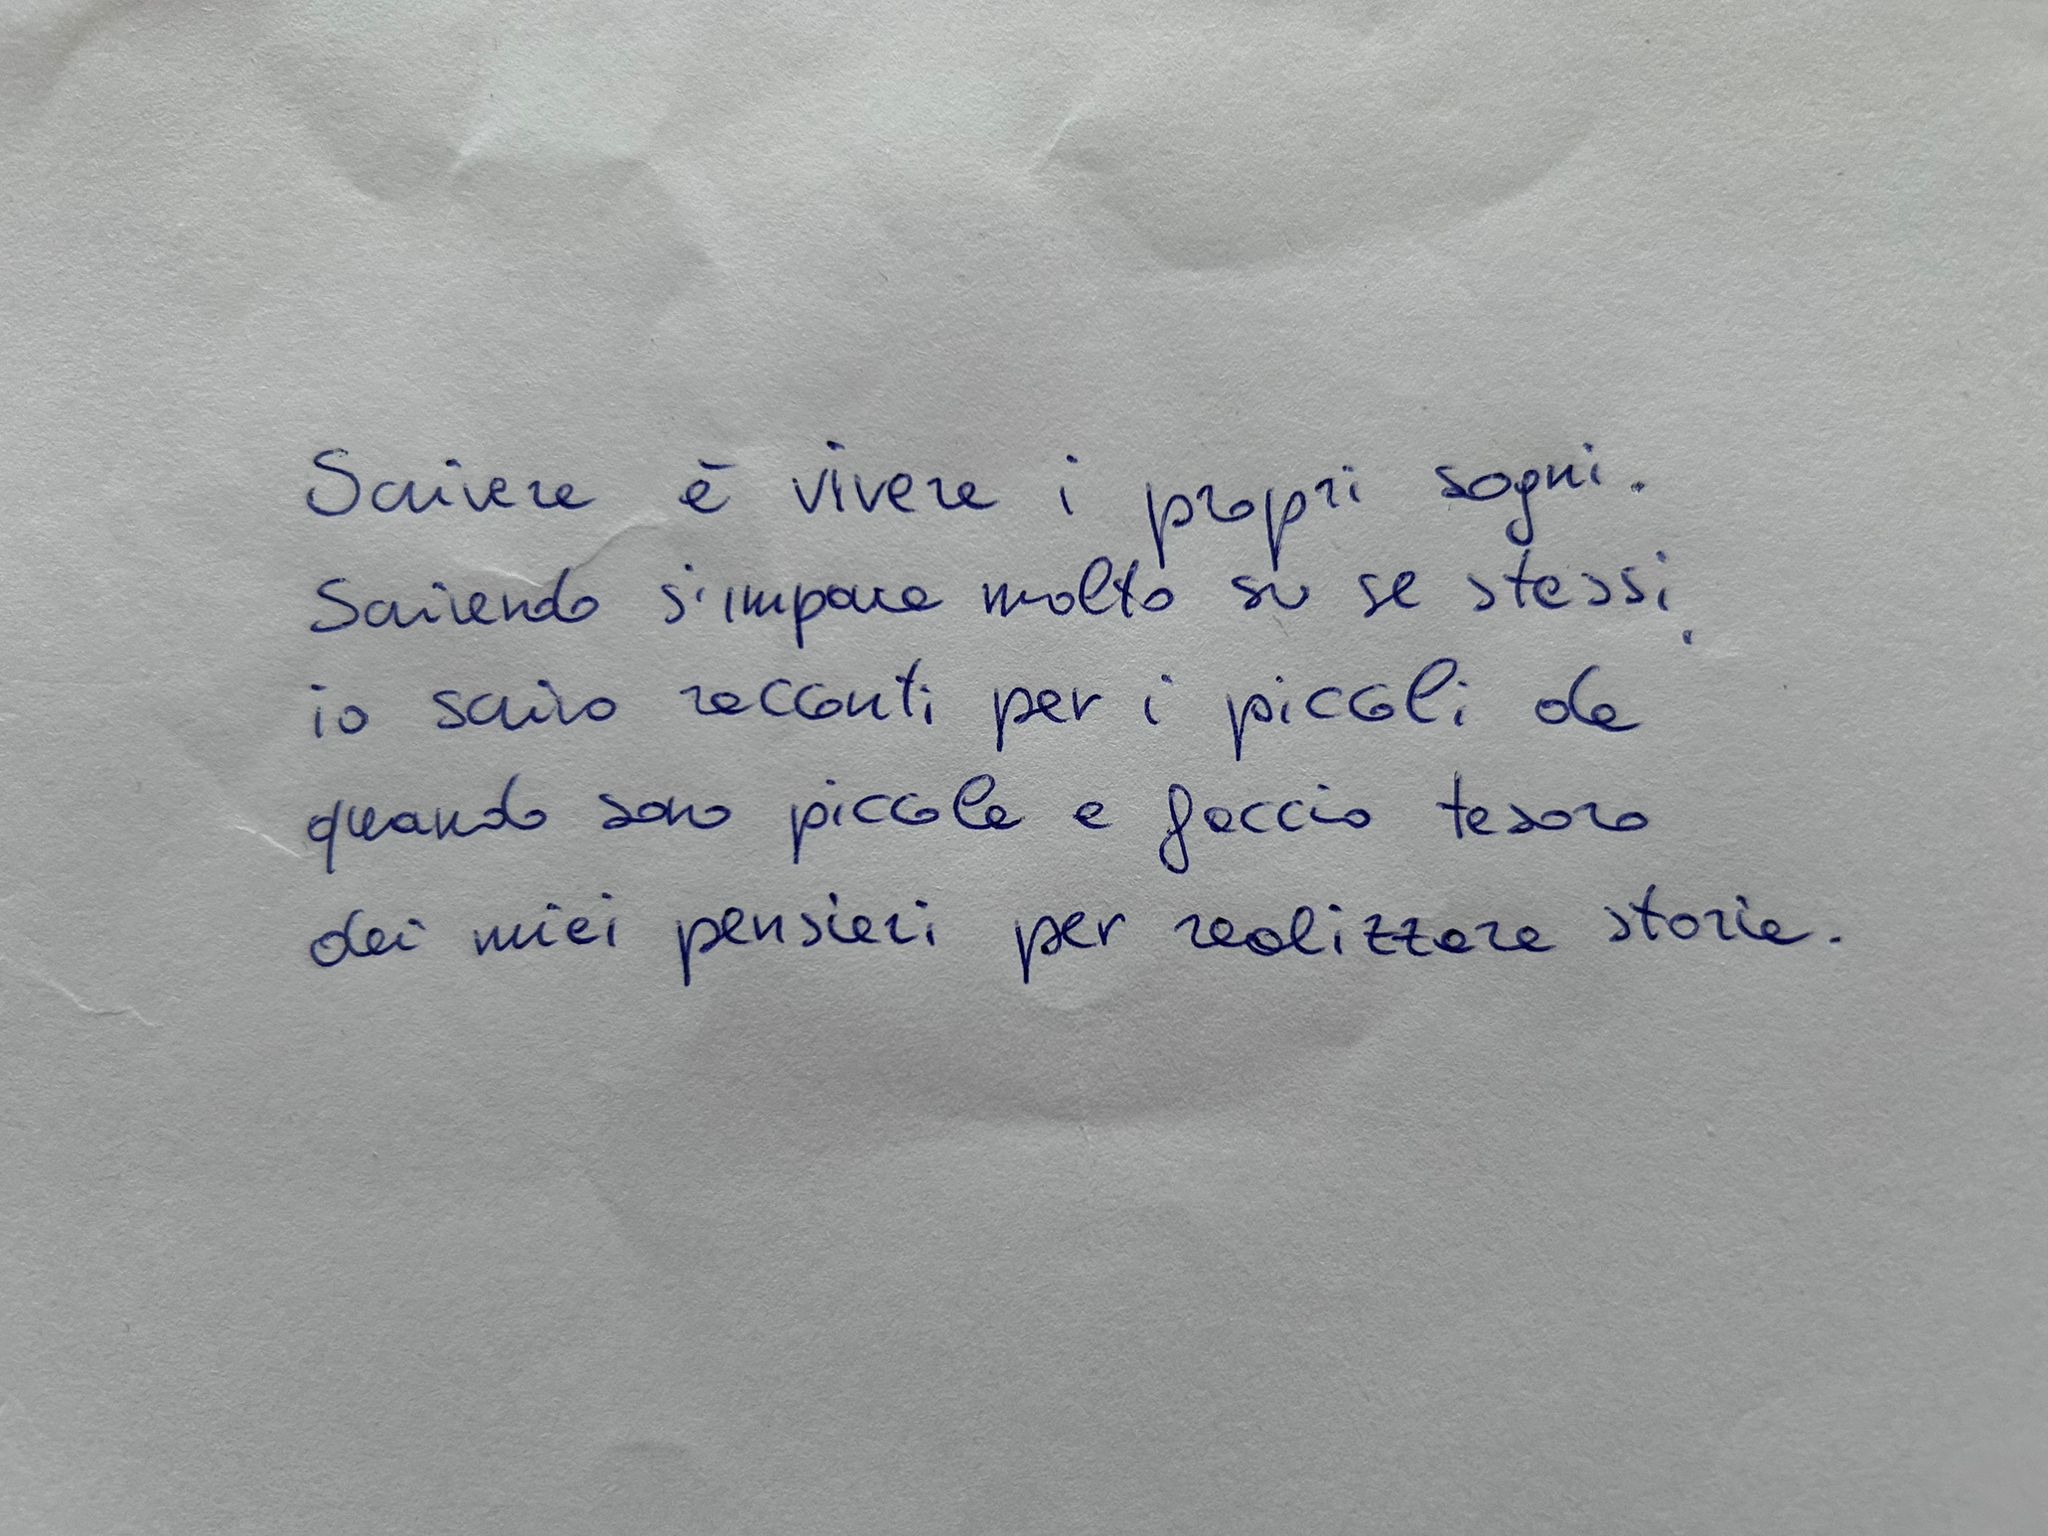 Scrivere è vivere i propri sogni.
Scrivendo s'impara molto su se stessi.
io scrivo racconti per i piccoli da
quando sono piccola e faccio tesoro
dei miei pensieri per realizzare storie.